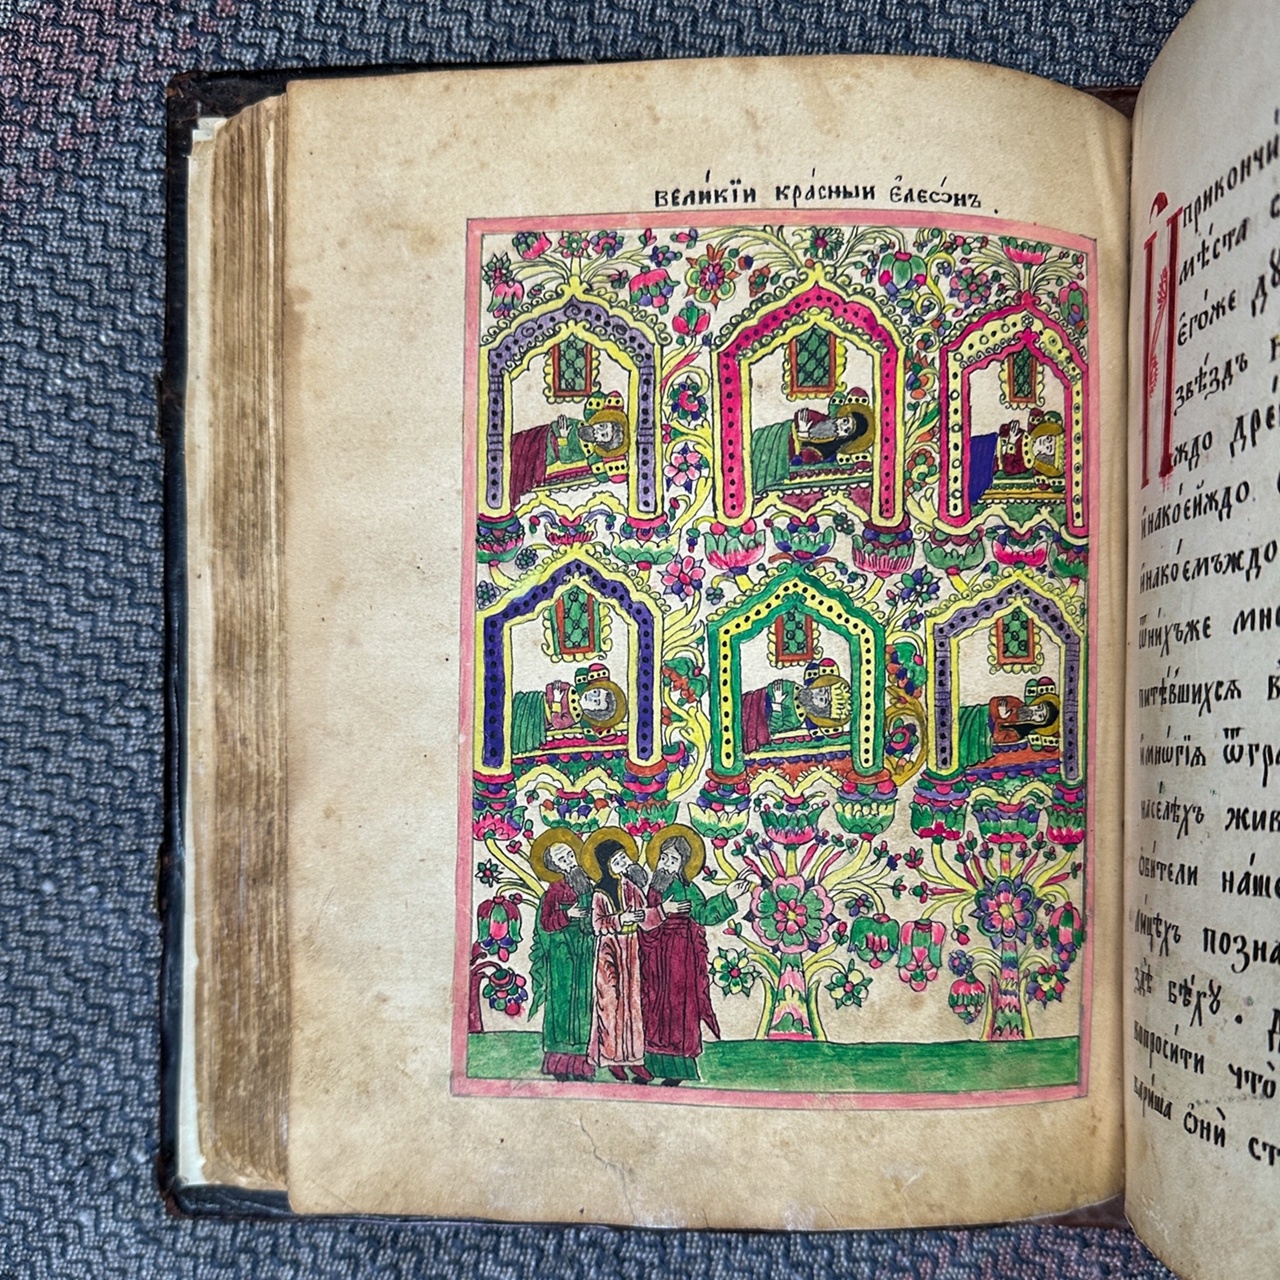 вели́кїи кра́сныи є҆лесѡ́нъ.
прикончи́
мѣ́ста
є҆го́же
звѣ́здъ
ждо дре́
и҆нако́ей́ждо
и҆нако́емъждо
ѿни́хъже мно
пита́вшихсѧ
и҆мнѡ́гїѧ ѿгра
насе́лѣхъ жив
ѻ҆би́тели на́ше
ли́цѣхъ позна
здѣ̀ бѣ́хꙋ.
вопроси́ти что̀
ѻ҆нѝ ст